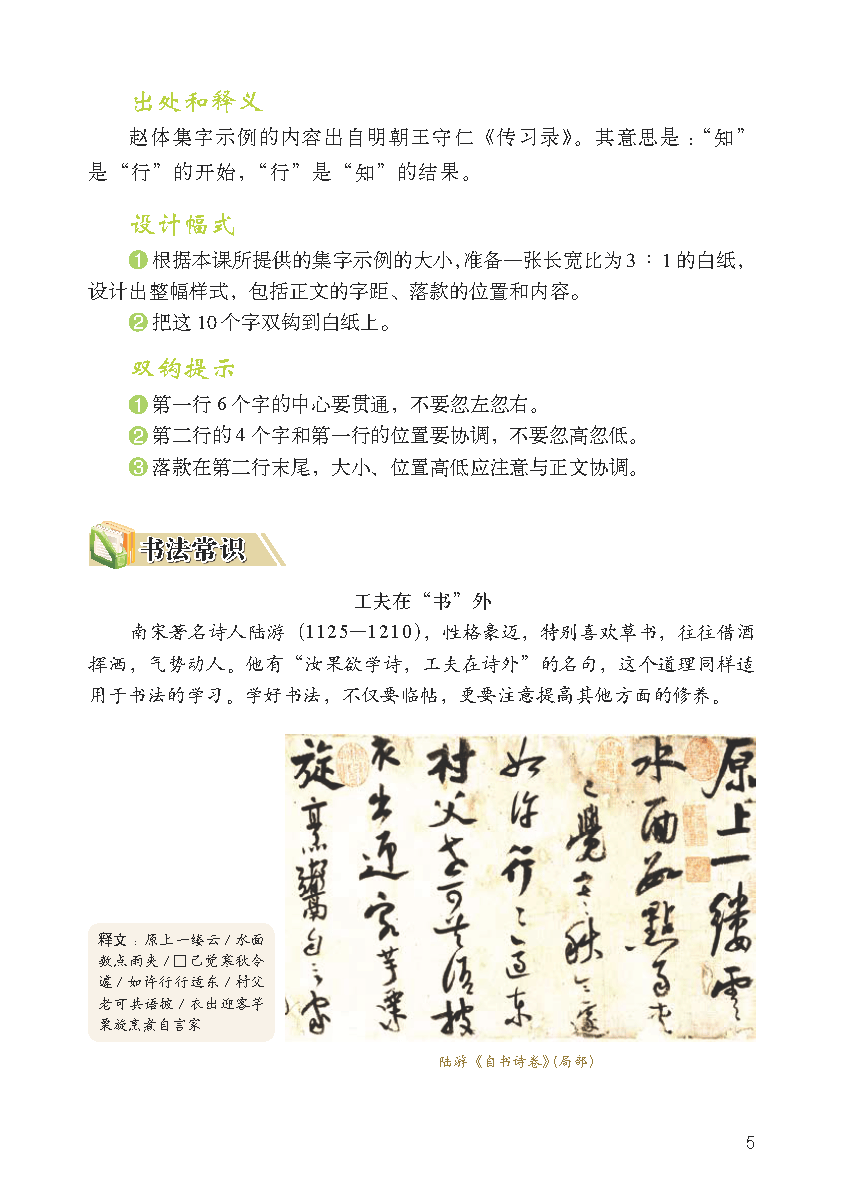 出处和释义
赵体集字示例的内容出自明朝王守仁《传习录》。其意思是：“知”
是“行”的开始，“行”是“知”的结果。
设计幅式
❶根据本课所提供的集字示例的大小，准备一张长宽比为3∶1的白纸，
设计出整幅样式，包括正文的字距、落款的位置和内容。
❷把这10个字双钩到白纸上。
双钩提示
❶第一行6个字的中心要贯通，不要忽左忽右。
❷第二行的4个字和第一行的位置要协调，不要忽高忽低。
❸落款在第二行末尾，大小、位置高低应注意与正文协调。
书法常识
工夫在“书”外
南宋著名诗人陆游（1125—1210），性格豪迈，特别喜欢草书，往往借酒
挥洒，气势动人。他有“汝果欲学诗，工夫在诗外”的名句，这个道理同样适
用于书法的学习。学好书法，不仅要临帖，更要注意提高其他方面的修养。
原上一缕云
水面数点雨夹
已觉寒秋令遽
如许行行适东
村父老可共语披
衣出迎客芋栗
旋烹煮自言家
释文：原上一缕云/水面
数点雨夹/□已觉寒秋令
遽/如许行行适东/村父
老可共语披/衣出迎客芋
栗旋烹煮自言家
陆游《自书诗卷》（局部）
5